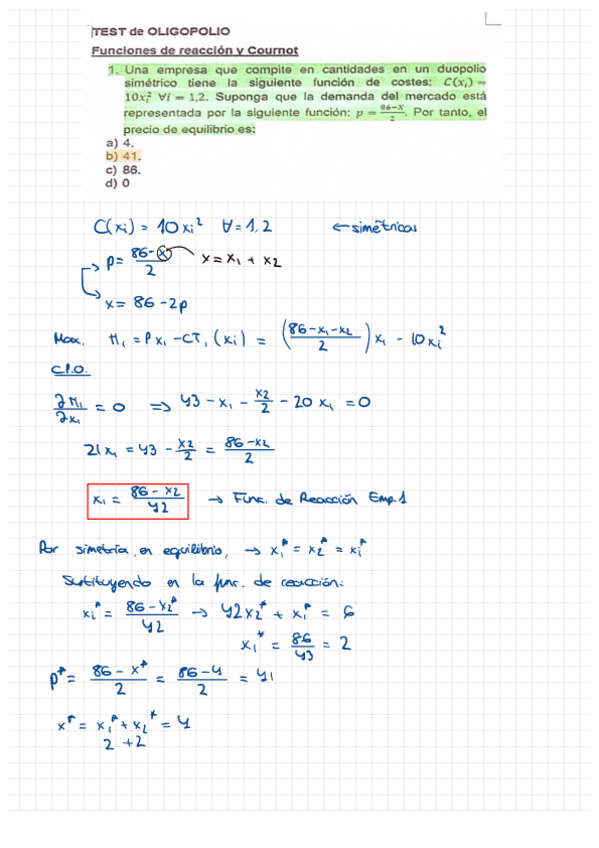 TEST de OLIGOPOLIO
Funciones de reacción y Cournot
1. Una empresa que compite en cantidades en un duopolio
simétrico tiene la siguiente función de costes: C(xᵢ) =
10xᵢ² ∀i = 1,2. Suponga que la demanda del mercado está
representada por la siguiente función: p = (86−X)/2. Por tanto, el
precio de equilibrio es:
a) 4.
b) 41.
c) 86.
d) 0
C(xi) = 10xi² ∀ = 1,2 ← simétricos
p = (86-x)/2 x = x1 + x2
x = 86 - 2p
Max. Π1 = P x1 - CT1 (xi) = ((86-x1-x2)/2) x1 - 10xi²
C.P.O.
∂Π1/∂x1 = 0 ⇒ 43 - x1 - x2/2 - 20 x1 = 0
21x1 = 43 - x2/2 = (86-x2)/2
x1 = (86 - x2)/42 → Func. de Reacción Emp. 1
Por simetría, en equilibrio, → x1* = x2* = xi*
Sustituyendo en la func. de reacción:
xi* = (86 - x2*)/42 → 42x2* + x1* = 6
x1* = 86/43 = 2
p* = (86 - x*)/2 = (86-4)/2 = 41
x* = x1* + x2* = 4
2 + 2